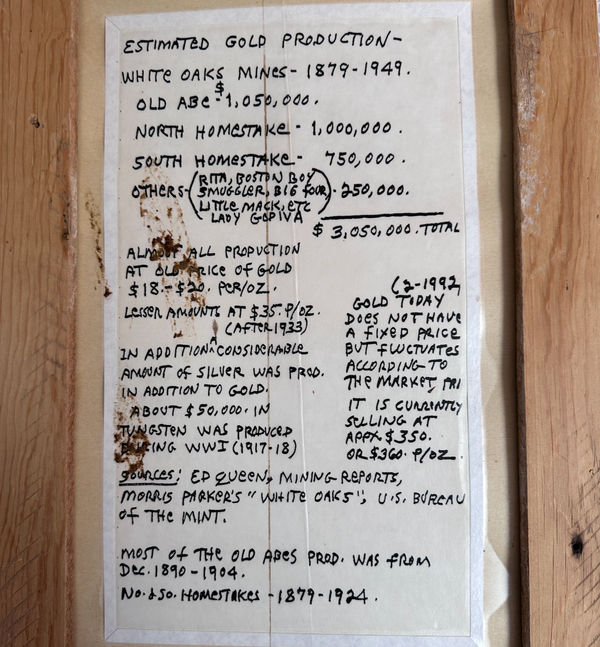 ESTIMATED GOLD PRODUCTION-
WHITE OAKS MINES - 1879-1949.
OLD ABE - $1,050,000.
NORTH HOMESTAKE - 1,000,000.
SOUTH HOMESTAKE - 750,000.
OTHERS- (RITA, BOSTON BOY
SMUGGLER, BIG FOUR,
LITTLE MACK, ETC
LADY GODIVA) - 250,000.
$ 3,050,000. TOTAL
ALMOST ALL PRODUCTION
AT OLD PRICE OF GOLD
$18.-$20. PER/OZ.
LESSER AMOUNTS AT $35. P/OZ.
(AFTER 1933)
IN ADDITION ^ CONSIDERABLE
AMOUNT OF SILVER WAS PROD.
IN ADDITION TO GOLD.
ABOUT $50,000. IN
TUNGSTEN WAS PRODUCED
DURING WWI (1917-18)
(2-1992)
GOLD TODAY
DOES NOT HAVE
A FIXED PRICE
BUT FLUCTUATES
ACCORDING TO
THE MARKET, PRI
IT IS CURRENTLY
SELLING AT
APPX $350.
OR $360. P/OZ.
SOURCES: ED QUEEN, MINING REPORTS,
MORRIS PARKER'S "WHITE OAKS", U.S. BUREAU
OF THE MINT.
MOST OF THE OLD ABES PROD. WAS FROM
DEC. 1890-1904.
NO. & SO. HOMESTAKES - 1879-1924.